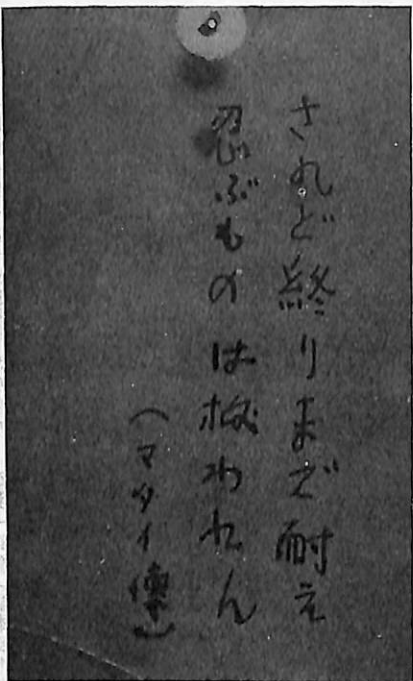 されど終りまで耐え
忍ぶものは救われん
（マタイ傳）